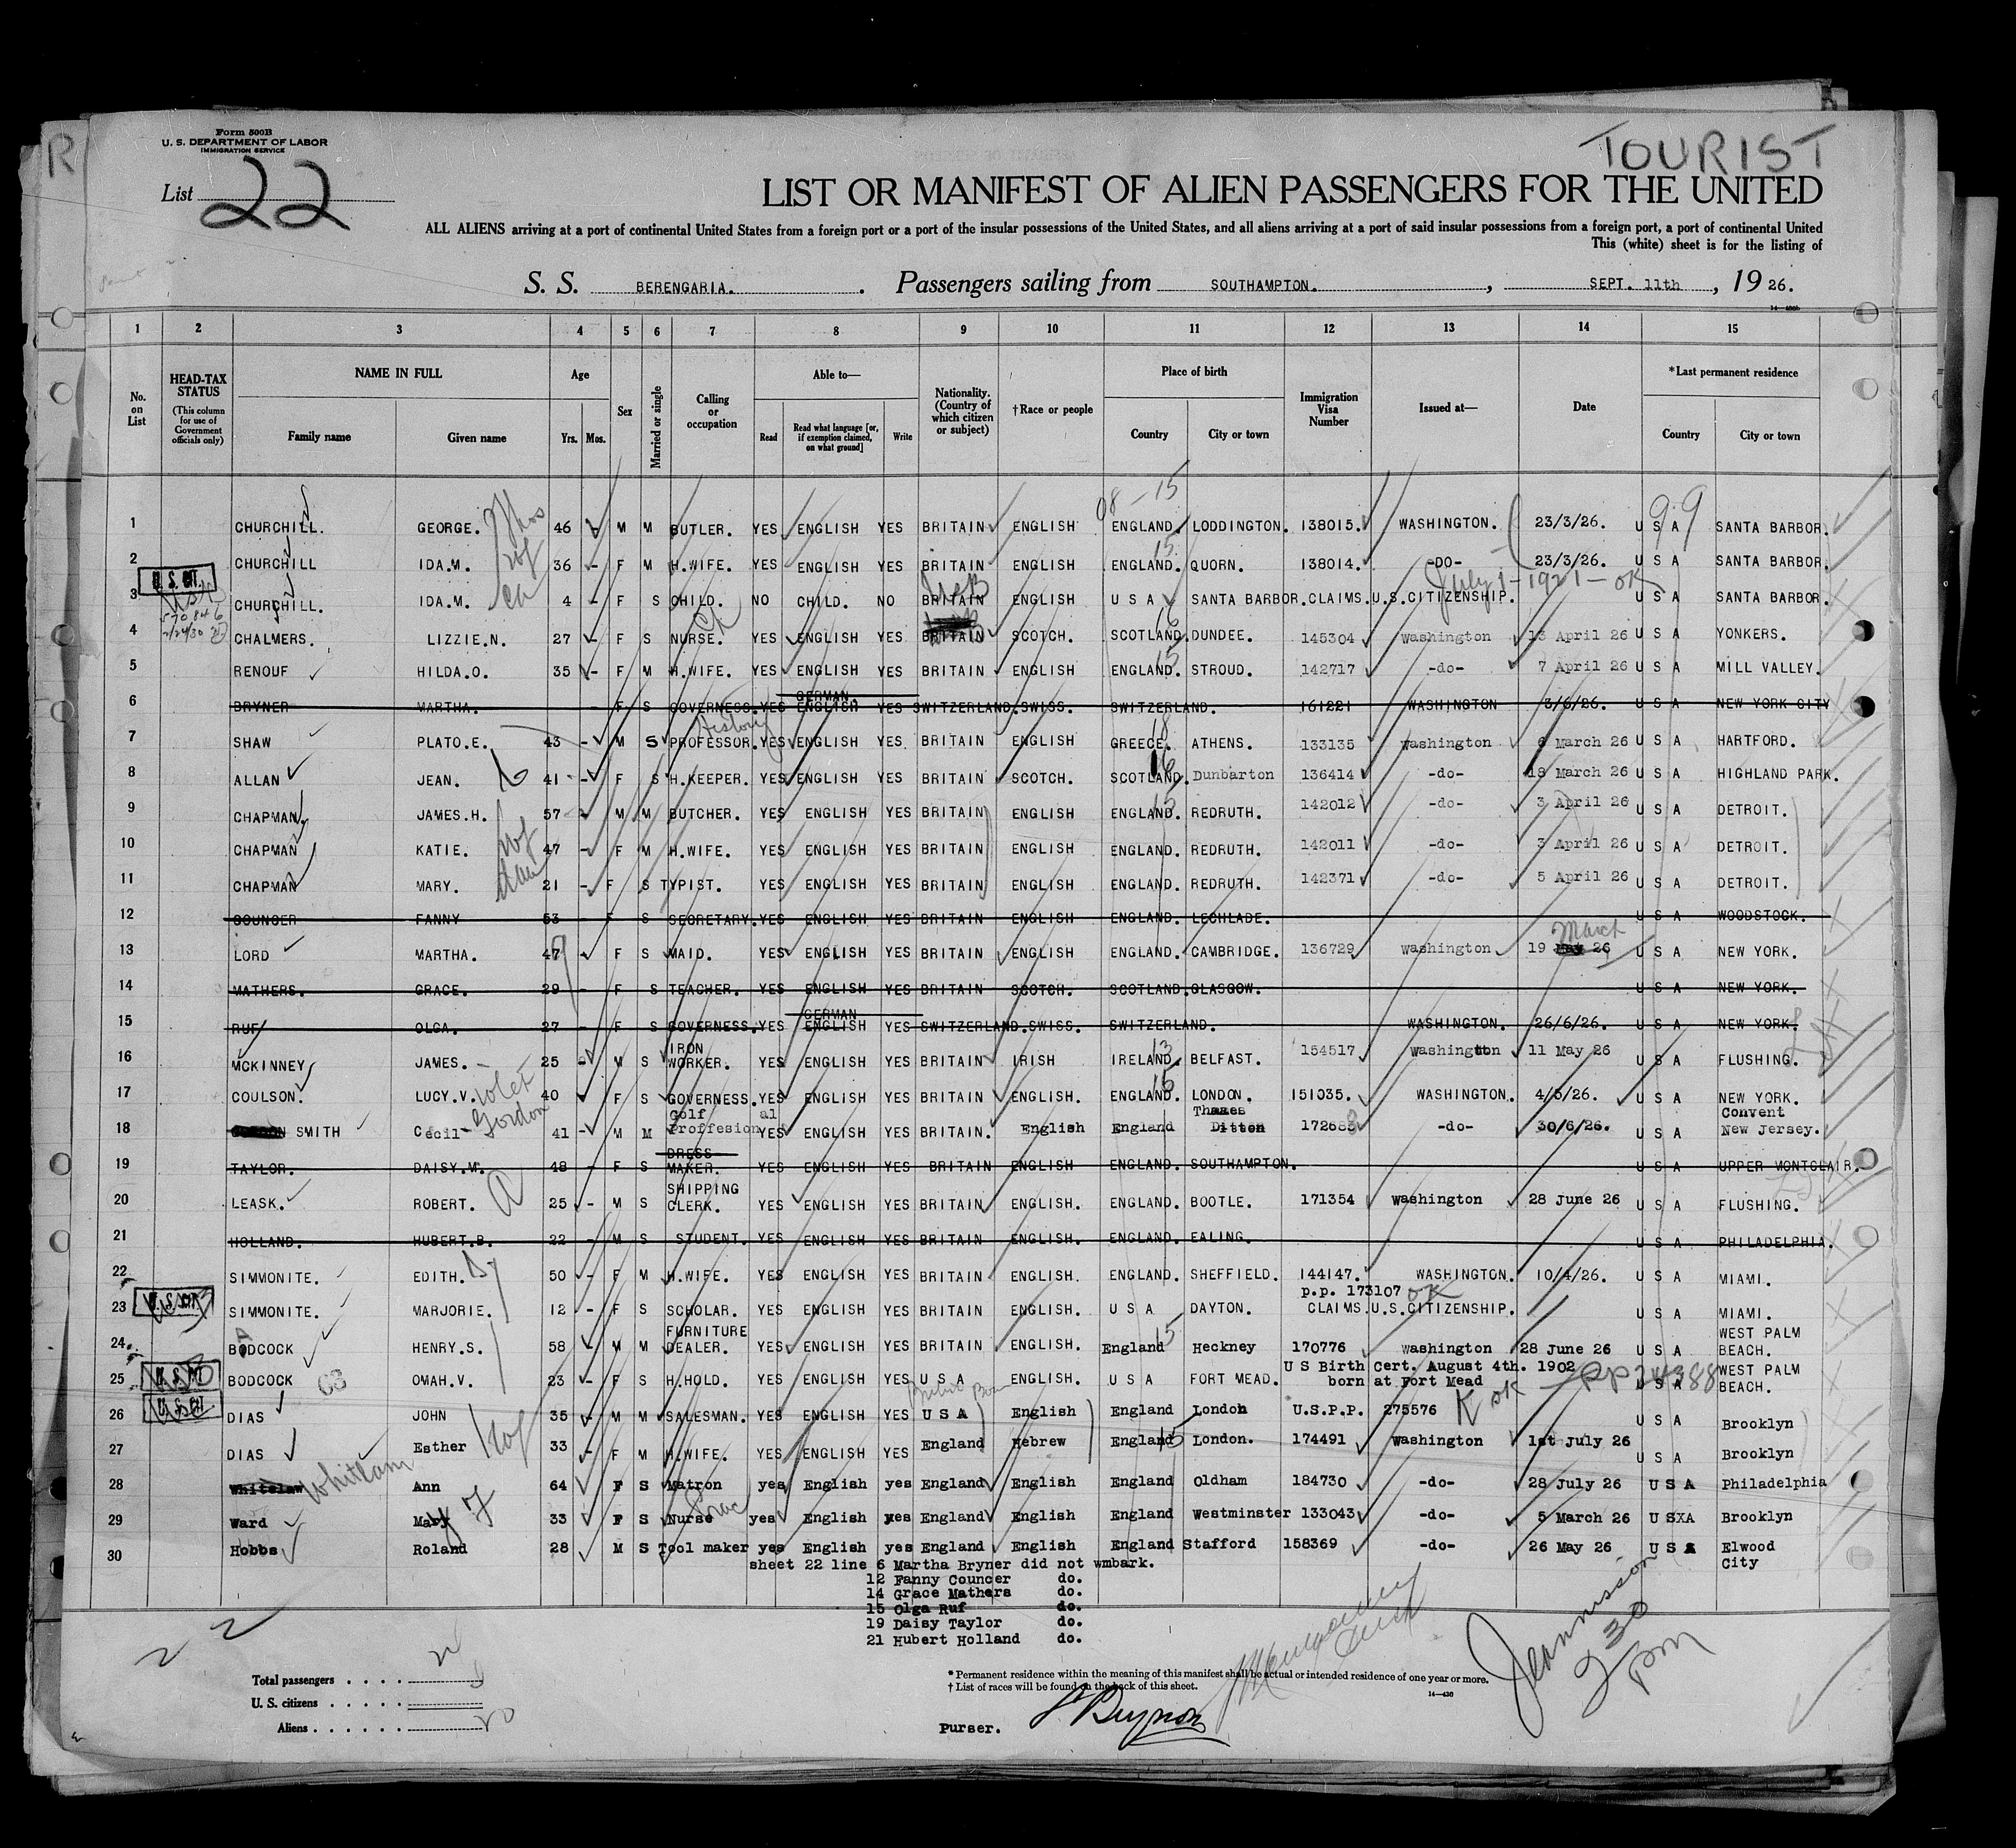 Form 500B
U. S. DEPARTMENT OF LABOR
IMMIGRATION SERVICE
R
TOURIST
List 22
LIST OR MANIFEST OF ALIEN PASSENGERS FOR THE UNITED
ALL ALIENS arriving at a port of continental United States from a foreign port or a port of the insular possessions of the United States, and all aliens arriving at a port of said insular possessions from a foreign port, a port of continental United
This (white) sheet is for the listing of
S. S. BERENGARIA. Passengers sailing from SOUTHAMPTON. , SEPT. 11th , 19 26.
1 2 3 4 5 6 7 8 9 10 11 12 13 14 15
No. on List
HEAD-TAX STATUS (This column for use of Government officials only)
NAME IN FULL Family name Given name
Age Yrs. Mos.
Sex
Married or single
Calling or occupation
Able to— Read Read what language [or, if exemption claimed, on what ground] Write
Nationality. (Country of which citizen or subject)
†Race or people
Place of birth Country City or town
Immigration Visa Number
Issued at—
Date
*Last permanent residence Country City or town
08-15 99
1 CHURCHILL. GEORGE. 46 - M M BUTLER. YES ENGLISH YES BRITAIN ENGLISH ENGLAND. LODDINGTON. 138015. WASHINGTON. 23/3/26. U S A SANTA BARBOR.
2 CHURCHILL IDA.M. wf 36 - F M H.WIFE. YES ENGLISH YES BRITAIN ENGLISH ENGLAND. 15 QUORN. 138014. -DO- 23/3/26. U S A SANTA BARBOR.
U.S. CIT. July 1-1921-OK
3 CHURCHILL. IDA.M. ch 4 - F S CHILD. NO CHILD. NO BRITAIN ENGLISH U S A SANTA BARBOR. CLAIMS.U.S.CITIZENSHIP. U S A SANTA BARBOR.
4 CHALMERS. LIZZIE.N. 27 - F S NURSE. YES ENGLISH YES BRITAIN SCOTCH. SCOTLAND. 16 DUNDEE. 145304 Washington 13 April 26 U S A YONKERS.
5 RENOUF HILDA.O. 35 - F M H.WIFE. YES ENGLISH YES BRITAIN ENGLISH ENGLAND. 15 STROUD. 142717 -do- 7 April 26 U S A MILL VALLEY.
GERMAN.
6 BRYNER MARTHA. - F S GOVERNESS. YES ENGLISH YES SWITZERLAND. SWISS. SWITZERLAND. 161221 WASHINGTON 3/6/26. U S A NEW YORK CITY
History
7 SHAW PLATO.E. 43 - M S PROFESSOR. YES ENGLISH YES BRITAIN ENGLISH GREECE. 18 ATHENS. 133135 Washington 6 March 26 U S A HARTFORD.
8 ALLAN JEAN. 41 - F S H.KEEPER. YES ENGLISH YES BRITAIN SCOTCH. SCOTLAND. 16 Dunbarton 136414 -do- 18 March 26 U S A HIGHLAND PARK.
9 CHAPMAN JAMES.H. 57 - M M BUTCHER. YES ENGLISH YES BRITAIN ENGLISH ENGLAND. 15 REDRUTH. 142012 -do- 3 April 26 U S A DETROIT.
10 CHAPMAN KATIE. wf 47 - F M H.WIFE. YES ENGLISH YES BRITAIN ENGLISH ENGLAND. REDRUTH. 142011 -do- 3 April 26 U S A DETROIT.
11 CHAPMAN MARY. dau 21 - F S TYPIST. YES ENGLISH YES BRITAIN ENGLISH ENGLAND. REDRUTH. 142371 -do- 5 April 26 U S A DETROIT.
12 COUNCER FANNY 53 - F S SECRETARY. YES ENGLISH YES BRITAIN ENGLISH ENGLAND. LECHLADE. U S A WOODSTOCK.
March
13 LORD MARTHA. 47 - F S MAID. YES ENGLISH YES BRITAIN ENGLISH ENGLAND. CAMBRIDGE. 136729 Washington 19 May 26 U S A NEW YORK.
14 MATHERS. GRACE. 29 - F S TEACHER. YES ENGLISH YES BRITAIN SCOTCH. SCOTLAND. GLASGOW. U S A NEW YORK.
GERMAN
15 RUF OLGA. 27 - F S GOVERNESS. YES ENGLISH YES SWITZERLAND. SWISS. SWITZERLAND. WASHINGTON. 26/6/26. U S A NEW YORK.
16 MCKINNEY JAMES. 25 - M S IRON WORKER. YES ENGLISH YES BRITAIN IRISH IRELAND. 13 BELFAST. 154517 Washington 11 May 26 U S A FLUSHING.
17 COULSON. LUCY.V. Violet 40 - F S GOVERNESS. YES ENGLISH YES BRITAIN ENGLISH. ENGLAND. 15 LONDON. 151035. WASHINGTON. 4/5/26. U S A NEW YORK.
18 SMITH Cecil Gordon 41 - M M Golf Proffesional YES ENGLISH YES BRITAIN. English England Thames Ditton 172683 -do- 30/6/26. U S A Convent New Jersey.
19 TAYLOR. DAISY.M. 48 - F S DRESS MAKER. YES ENGLISH YES BRITAIN ENGLISH ENGLAND. SOUTHAMPTON. U S A UPPER MONTCLAIR.
20 LEASK. ROBERT. 25 - M S SHIPPING CLERK. YES ENGLISH YES BRITAIN ENGLISH. ENGLAND. BOOTLE. 171354 Washington 28 June 26 U S A FLUSHING.
21 HOLLAND. HUBERT.B. 22 - M S STUDENT. YES ENGLISH YES BRITAIN ENGLISH. ENGLAND. EALING. U S A PHILADELPHIA.
22 SIMMONITE. EDITH. 50 - F M H.WIFE. YES ENGLISH YES BRITAIN ENGLISH. ENGLAND. SHEFFIELD. 144147. WASHINGTON. 10/4/26. U S A MIAMI.
p.p. 173107 OK
23 U.S. CIT. SIMMONITE. MARJORIE. 12 - F S SCHOLAR. YES ENGLISH YES BRITAIN ENGLISH. U S A DAYTON. CLAIMS.U.S.CITIZENSHIP. U S A MIAMI.
24 BODCOCK A HENRY.S. 58 - M M FURNITURE DEALER. YES ENGLISH YES BRITAIN ENGLISH. England 15 Heckney 170776 Washington 28 June 26 U S A WEST PALM BEACH.
US Birth Cert. August 4th. 1902
25 U.S. CIT. BODCOCK OMAH.V. 23 - F S H.HOLD. YES ENGLISH YES U S A ENGLISH. U S A FORT MEAD. born at Fort Mead PP 24388 U S A WEST PALM BEACH.
26 U.S. CIT. DIAS JOHN 35 - M M SALESMAN. YES ENGLISH YES U S A English England London U.S.P.P. 275576 OK U S A Brooklyn
27 DIAS Esther wf 33 - F M H.WIFE. YES ENGLISH YES England Hebrew England 15 London. 174491 Washington 1st July 26 U S A Brooklyn
28 Whitelaw Whittam Ann 64 F S Matron yes English yes England English England Oldham 184730 -do- 28 July 26 U S A Philadelphia
29 Ward Mary F 33 F S Nurse yes English yes England English England Westminster 133043 -do- 5 March 26 USXA Brooklyn
30 Hobbs Roland 28 M S Tool maker yes English yes England English England Stafford 158369 -do- 26 May 26 U S A Elwood City
sheet 22 line 6 Martha Bryner did not wmbark.
12 Fanny Councer do.
14 Grace Mathers do.
15 Olga Ruf do.
19 Daisy Taylor do.
21 Hubert Holland do.
Jeannisson
2 30
pm
Total passengers . . . .
U. S. citizens . . . . .
Aliens . . . . . . 20
* Permanent residence within the meaning of this manifest shall be actual or intended residence of one year or more.
† List of races will be found on the back of this sheet.
14—430
Purser.